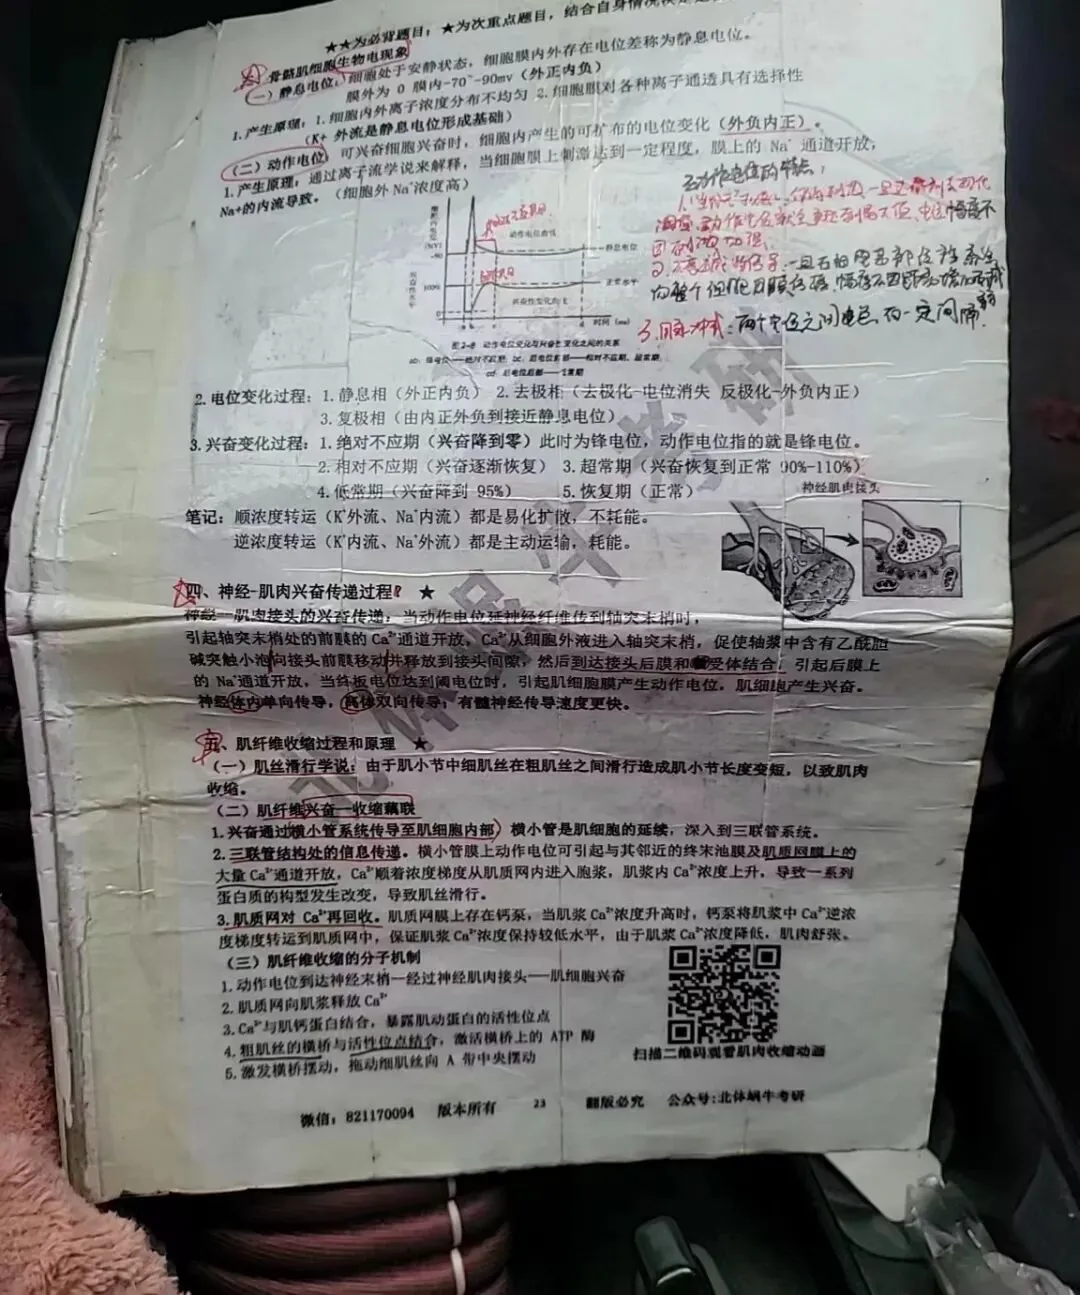 ★★为必背题目；★为次重点题目，结合自身情况
骨骼肌细胞生物电现象
(一)静息电位：细胞处于安静状态，细胞膜内外存在电位差称为静息电位。
膜外为 0 膜内-70~-90mv（外正内负）
1.产生原理：1.细胞内外离子浓度分布不均匀 2.细胞膜对各种离子通透具有选择性
（K+ 外流是静息电位形成基础）
(二)动作电位：可兴奋细胞兴奋时，细胞内产生的可扩布的电位变化（外负内正）。
1.产生原理：通过离子流学说来解释，当细胞膜上刺激达到一定程度，膜上的 Na⁺ 通道开放，
Na+的内流导致。（细胞外 Na⁺浓度高）
动作电位曲线
静息电位
-90
100%
正常水平
兴奋性变化曲线
时间 (ms)
图2-8 动作电位变化与兴奋性变化之间的关系
3.脉冲式：两个电位之间总有一定间隔
2.电位变化过程：1.静息相（外正内负） 2.去极相（去极化-电位消失 反极化-外负内正）
3.复极相（由内正外负到接近静息电位）
3.兴奋变化过程：1.绝对不应期（兴奋降到零）此时为锋电位，动作电位指的就是锋电位。
2.相对不应期（兴奋逐渐恢复） 3.超常期（兴奋恢复到正常 90%-110%）
4.低常期（兴奋降到 95%） 5.恢复期（正常）
神经肌肉接头
笔记：顺浓度转运（K⁺外流、Na⁺内流）都是易化扩散，不耗能。
逆浓度转运（K⁺内流、Na⁺外流）都是主动运输，耗能。
四、神经-肌肉兴奋传递过程? ★
神经—肌肉接头的兴奋传递：当动作电位延神经纤维传到轴突末梢时，
引起轴突末梢处的前膜的 Ca²⁺通道开放，Ca²⁺从细胞外液进入轴突末梢，促使轴浆中含有乙酰胆
碱突触小泡向接头前膜移动并释放到接头间隙，然后到达接头后膜和受体结合，引起后膜上
的 Na⁺通道开放，当终板电位达到阈电位时，引起肌细胞膜产生动作电位，肌细胞产生兴奋。
神经体内单向传导，离体双向传导；有髓神经传导速度更快。
五、肌纤维收缩过程和原理 ★
(一)肌丝滑行学说：由于肌小节中细肌丝在粗肌丝之间滑行造成肌小节长度变短，以致肌肉
收缩。
(二)肌纤维兴奋—收缩耦联
1.兴奋通过横小管系统传导至肌细胞内部）横小管是肌细胞的延续，深入到三联管系统。
2.三联管结构处的信息传递。横小管膜上动作电位可引起与其邻近的终末池膜及肌质网膜上的
大量 Ca²⁺通道开放，Ca²⁺顺着浓度梯度从肌质网内进入胞浆，肌浆内 Ca²⁺浓度上升，导致一系列
蛋白质的构型发生改变，导致肌丝滑行。
3.肌质网对 Ca²⁺再回收。肌质网膜上存在钙泵，当肌浆 Ca²⁺浓度升高时，钙泵将肌浆中 Ca²⁺逆浓
度梯度转运到肌质网中，保证肌浆 Ca²⁺浓度保持较低水平，由于肌浆 Ca²⁺浓度降低，肌肉舒张。
(三)肌纤维收缩的分子机制
1.动作电位到达神经末梢—经过神经肌肉接头—肌细胞兴奋
2.肌质网向肌浆释放 Ca²⁺
3.Ca²⁺与肌钙蛋白结合，暴露肌动蛋白的活性位点
4.粗肌丝的横桥与活性位点结合，激活横桥上的 ATP 酶
5.激发横桥摆动，拖动细肌丝向 A 带中央摆动
扫描二维码观看肌肉收缩动画
微信：821170094 版本所有 23 翻版必究 公众号:北体蜗牛考研
北体蜗牛考研